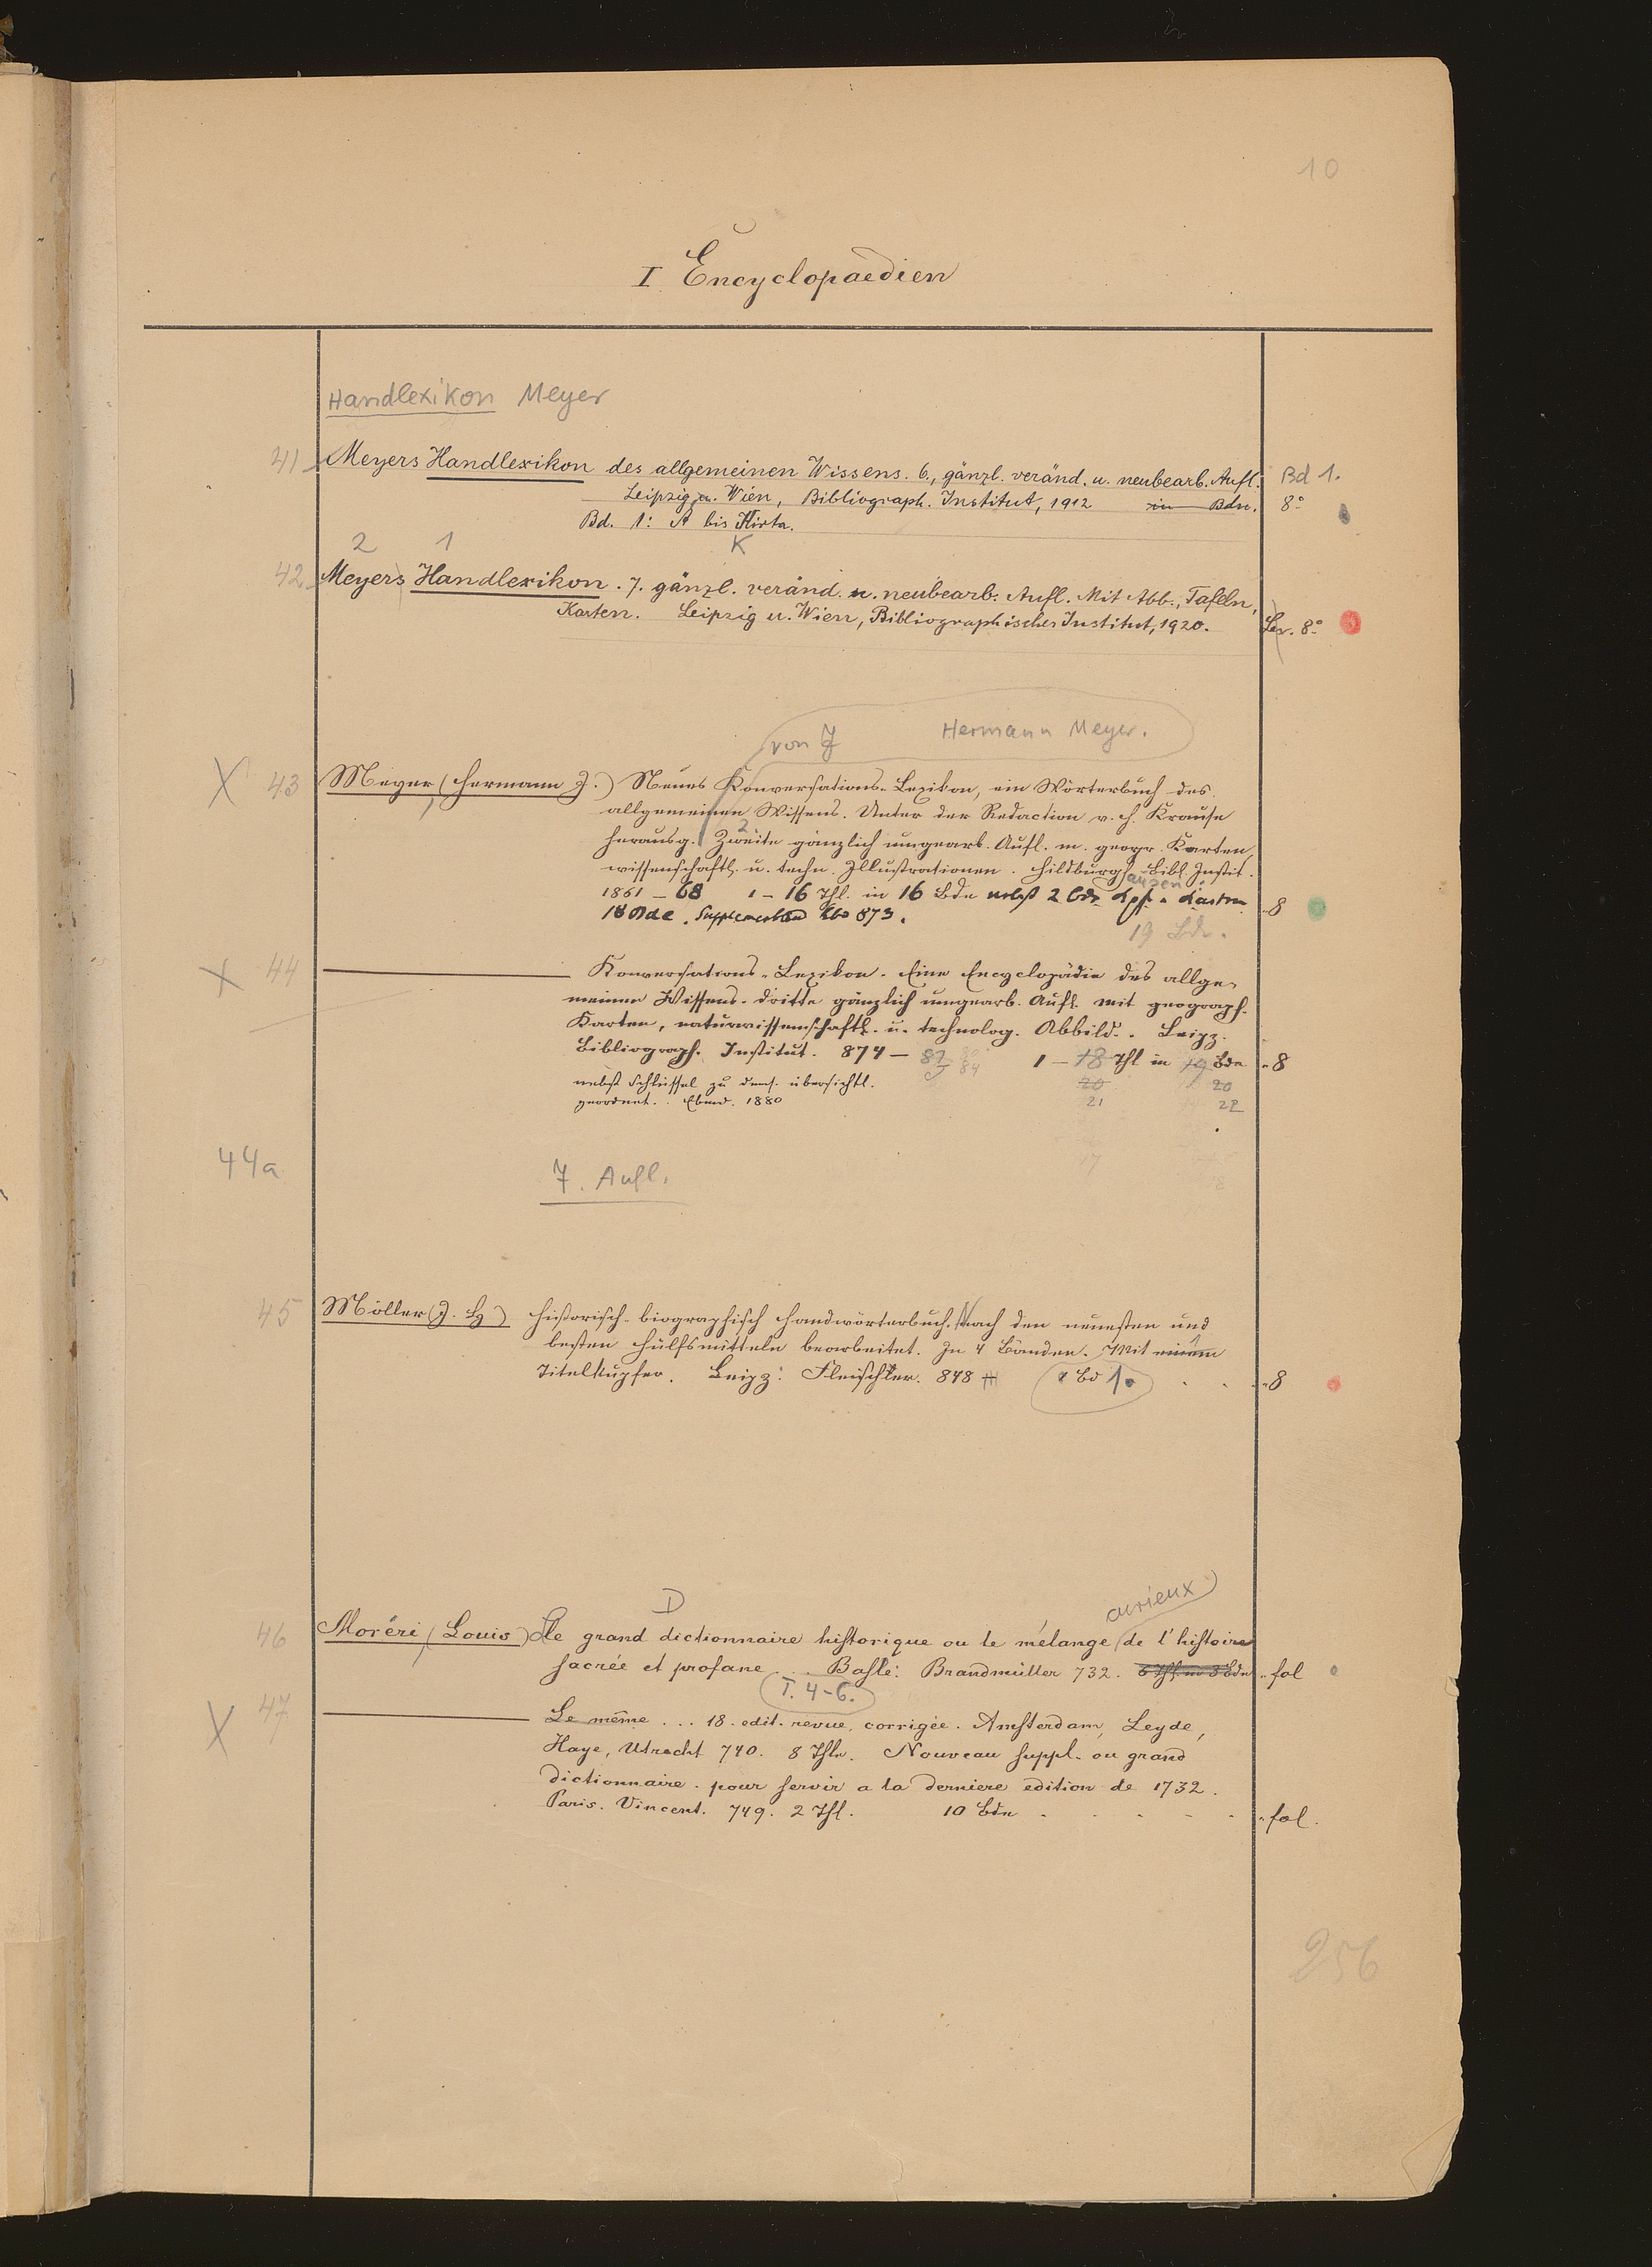 10
I Encyclopaedien
Handlexikon Meyer
41 Meyers Handlexikon des allgemeinen Wissens. 6., gänzl. veränd. u. neubearb. Aufl. Bd 1.
Leipzig u. Wien, Bibliograph. Institut, 1912 in Bdn. 8°
Bd. 1: A bis Kirta.
2 1 K
42 Meyers Handlexikon. 7. gänzl. veränd. u. neubearb. Aufl. Mit Abb., Tafeln,
Karten. Leipzig u. Wien, Bibliographisches Institut, 1920. Lex. 8°
von J Hermann Meyer.
X 43 Meyer (Hermann J.) Neues Konversations-Lexikon, ein Wörterbuch des
allgemeinen Wissens. Unter der Redaction v. H. Krause
herausg. Zweite gänzlich umgearb. Aufl. m. geogr. Karten,
2
wissenschaftl. u. techn. Illustrationen. Hildburg Bibl. Instit.
ausen
1861 – 68 1 – 16 Thl. in 16 Bde nebst 2 Bde Kpf. u. Karten 8
18 Bde. Supplementband 873.
19 Bde.
X 44 Konversations-Lexikon. Eine Encyclopädie des allge-
meinen Wissens. dritte gänzlich umgearb. Aufl. mit geograph.
Karten, naturwissenschaftl. u. technolog. Abbild. Leipz.
Bibliograph. Institut. 874 – 82 84 1 – 18 Thl in 19 Bde 8
nebst Schlüssel zu dems. übersichtl. 20 20
geordnet. Ebend. 1880 21 22
44a 7. Aufl.
45 Möller (J. H) historisch-biographisch Handwörterbuch. Nach den neuesten und
besten Hülfsmitteln bearbeitet. In 4 Bänden. Mit einem
1
Titelkupfer. Leipz: Fleischer. 848 Bd 1. 8
D curieux
46 Moréri (Louis) Le grand dictionnaire historique ou le mélange de l'histoire
sacrée et profane Basle: Brandmüller 732. 6 Thl in 3 Bde fol
T. 4-6.
X 47 Le même ... 18. edit. revue, corrigée. Amsterdam, Leyde,
Haye, Utrecht 740. 8 Thle. Nouveau suppl. ou grand
dictionnaire. pour servir a la derniere edition de 1732.
Paris. Vincent. 749. 2 Thl. 10 Bde fol.
256